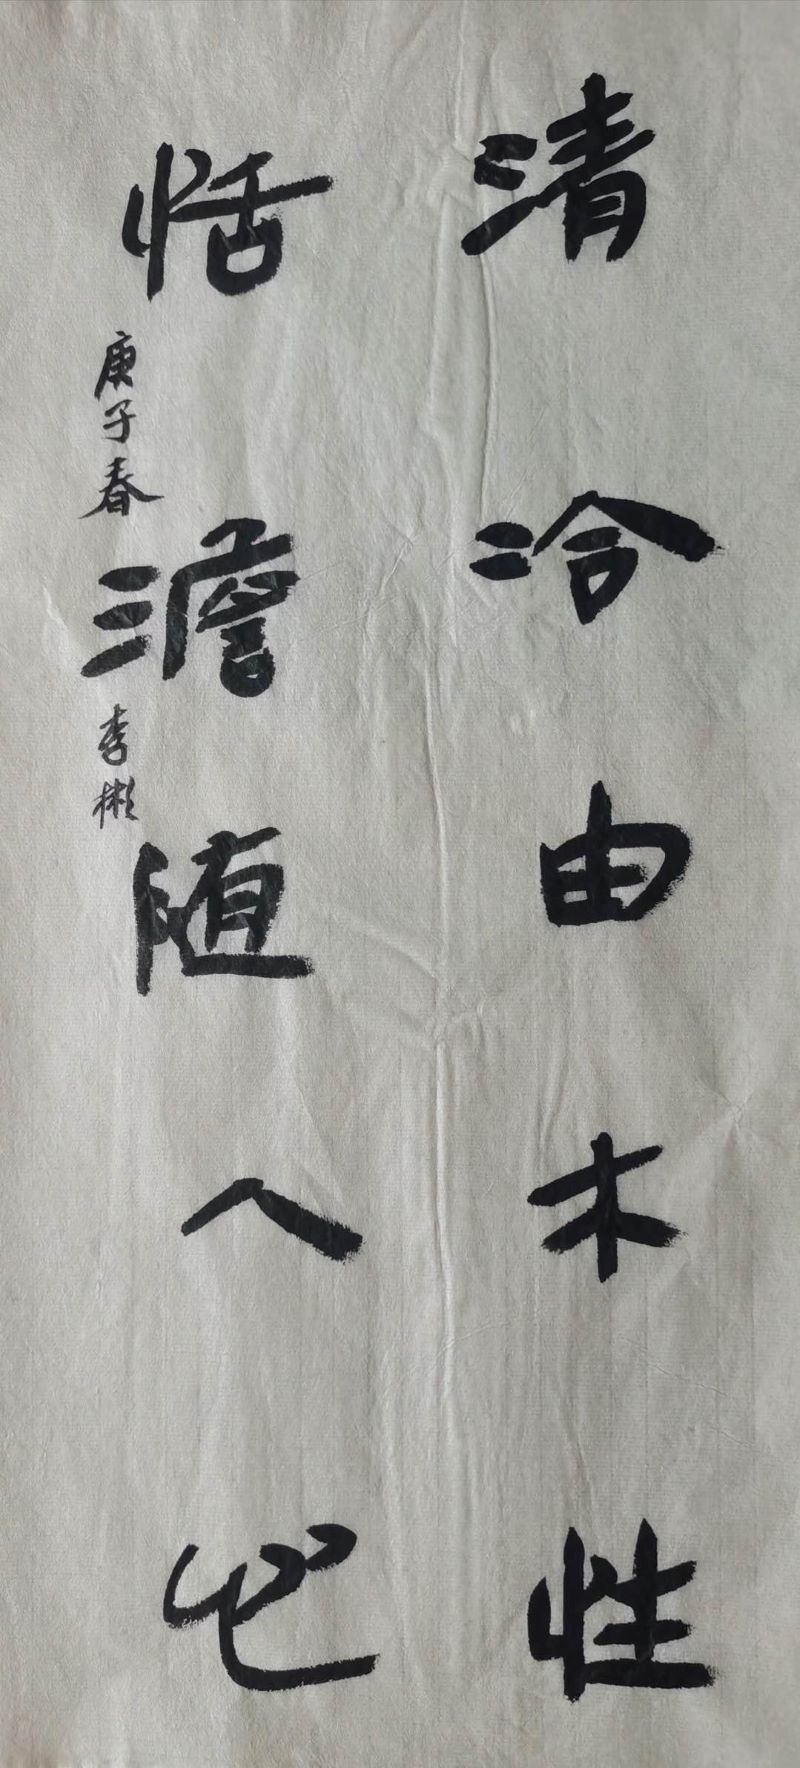 清冷由木性
恬澹随人心
庚子春
李彬